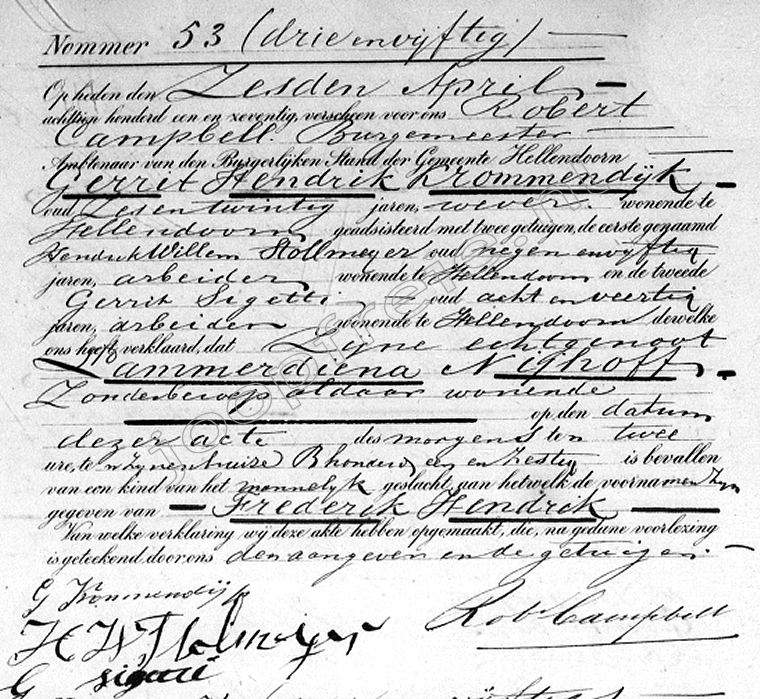 Nommer 53 (drie en vijftig)
Op heden den Zesden April
achttien honderd een en zeventig, verscheen voor ons Robert
Campbell. Burgemeester
Ambtenaar van den Burgerlijken Stand der Gemeente Hellendoorn
Gerrit Hendrik Krommendijk
oud Zesentwintig jaren, wever. wonende te
Hellendoorn geadsisteerd met twee getuigen, de eerste genaamd
Hendrik Willem Stollmeyer oud negen en vijftig
jaren, arbeider wonende te Hellendoorn en de tweede
Gerrit oud acht en veertig
jaren, arbeider wonende te Hellendoorn dewelke
ons heeft verklaard, dat Zijne echtgenoot
Lammerdiena Nijhoff
Zonder beroep aldaar wonende
op den datum
dezer acte des morgens ten twee
ure, te zynen huize B honderd een en Zestig is bevallen
van een kind van het mannelyk geslacht, aan hetwelk de voornamen zyn
gegeven van Frederik Hendrik
Van welke verklaring wij deze akte hebben opgemaakt, die, na gedane voorlezing
is geteekend, door ons den aangever en de getuigen.
G Krommendijk
Rob Campbell
H W Stolmeijer
G